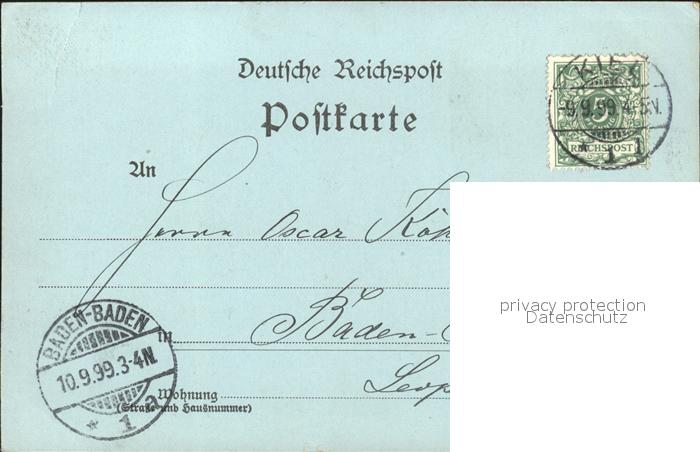 Deutsche Reichspost
Postkarte
KIEL
9.9.99.4-5V.
REICHSPOST
* 1 l
An
Herrn Oscar Köh
privacy protection
Datenschutz
BADEN-BADEN
10.9.99.3-4N.
* 1 a
in
Baden-
Leop
Wohnung
(Straße und Hausnummer)